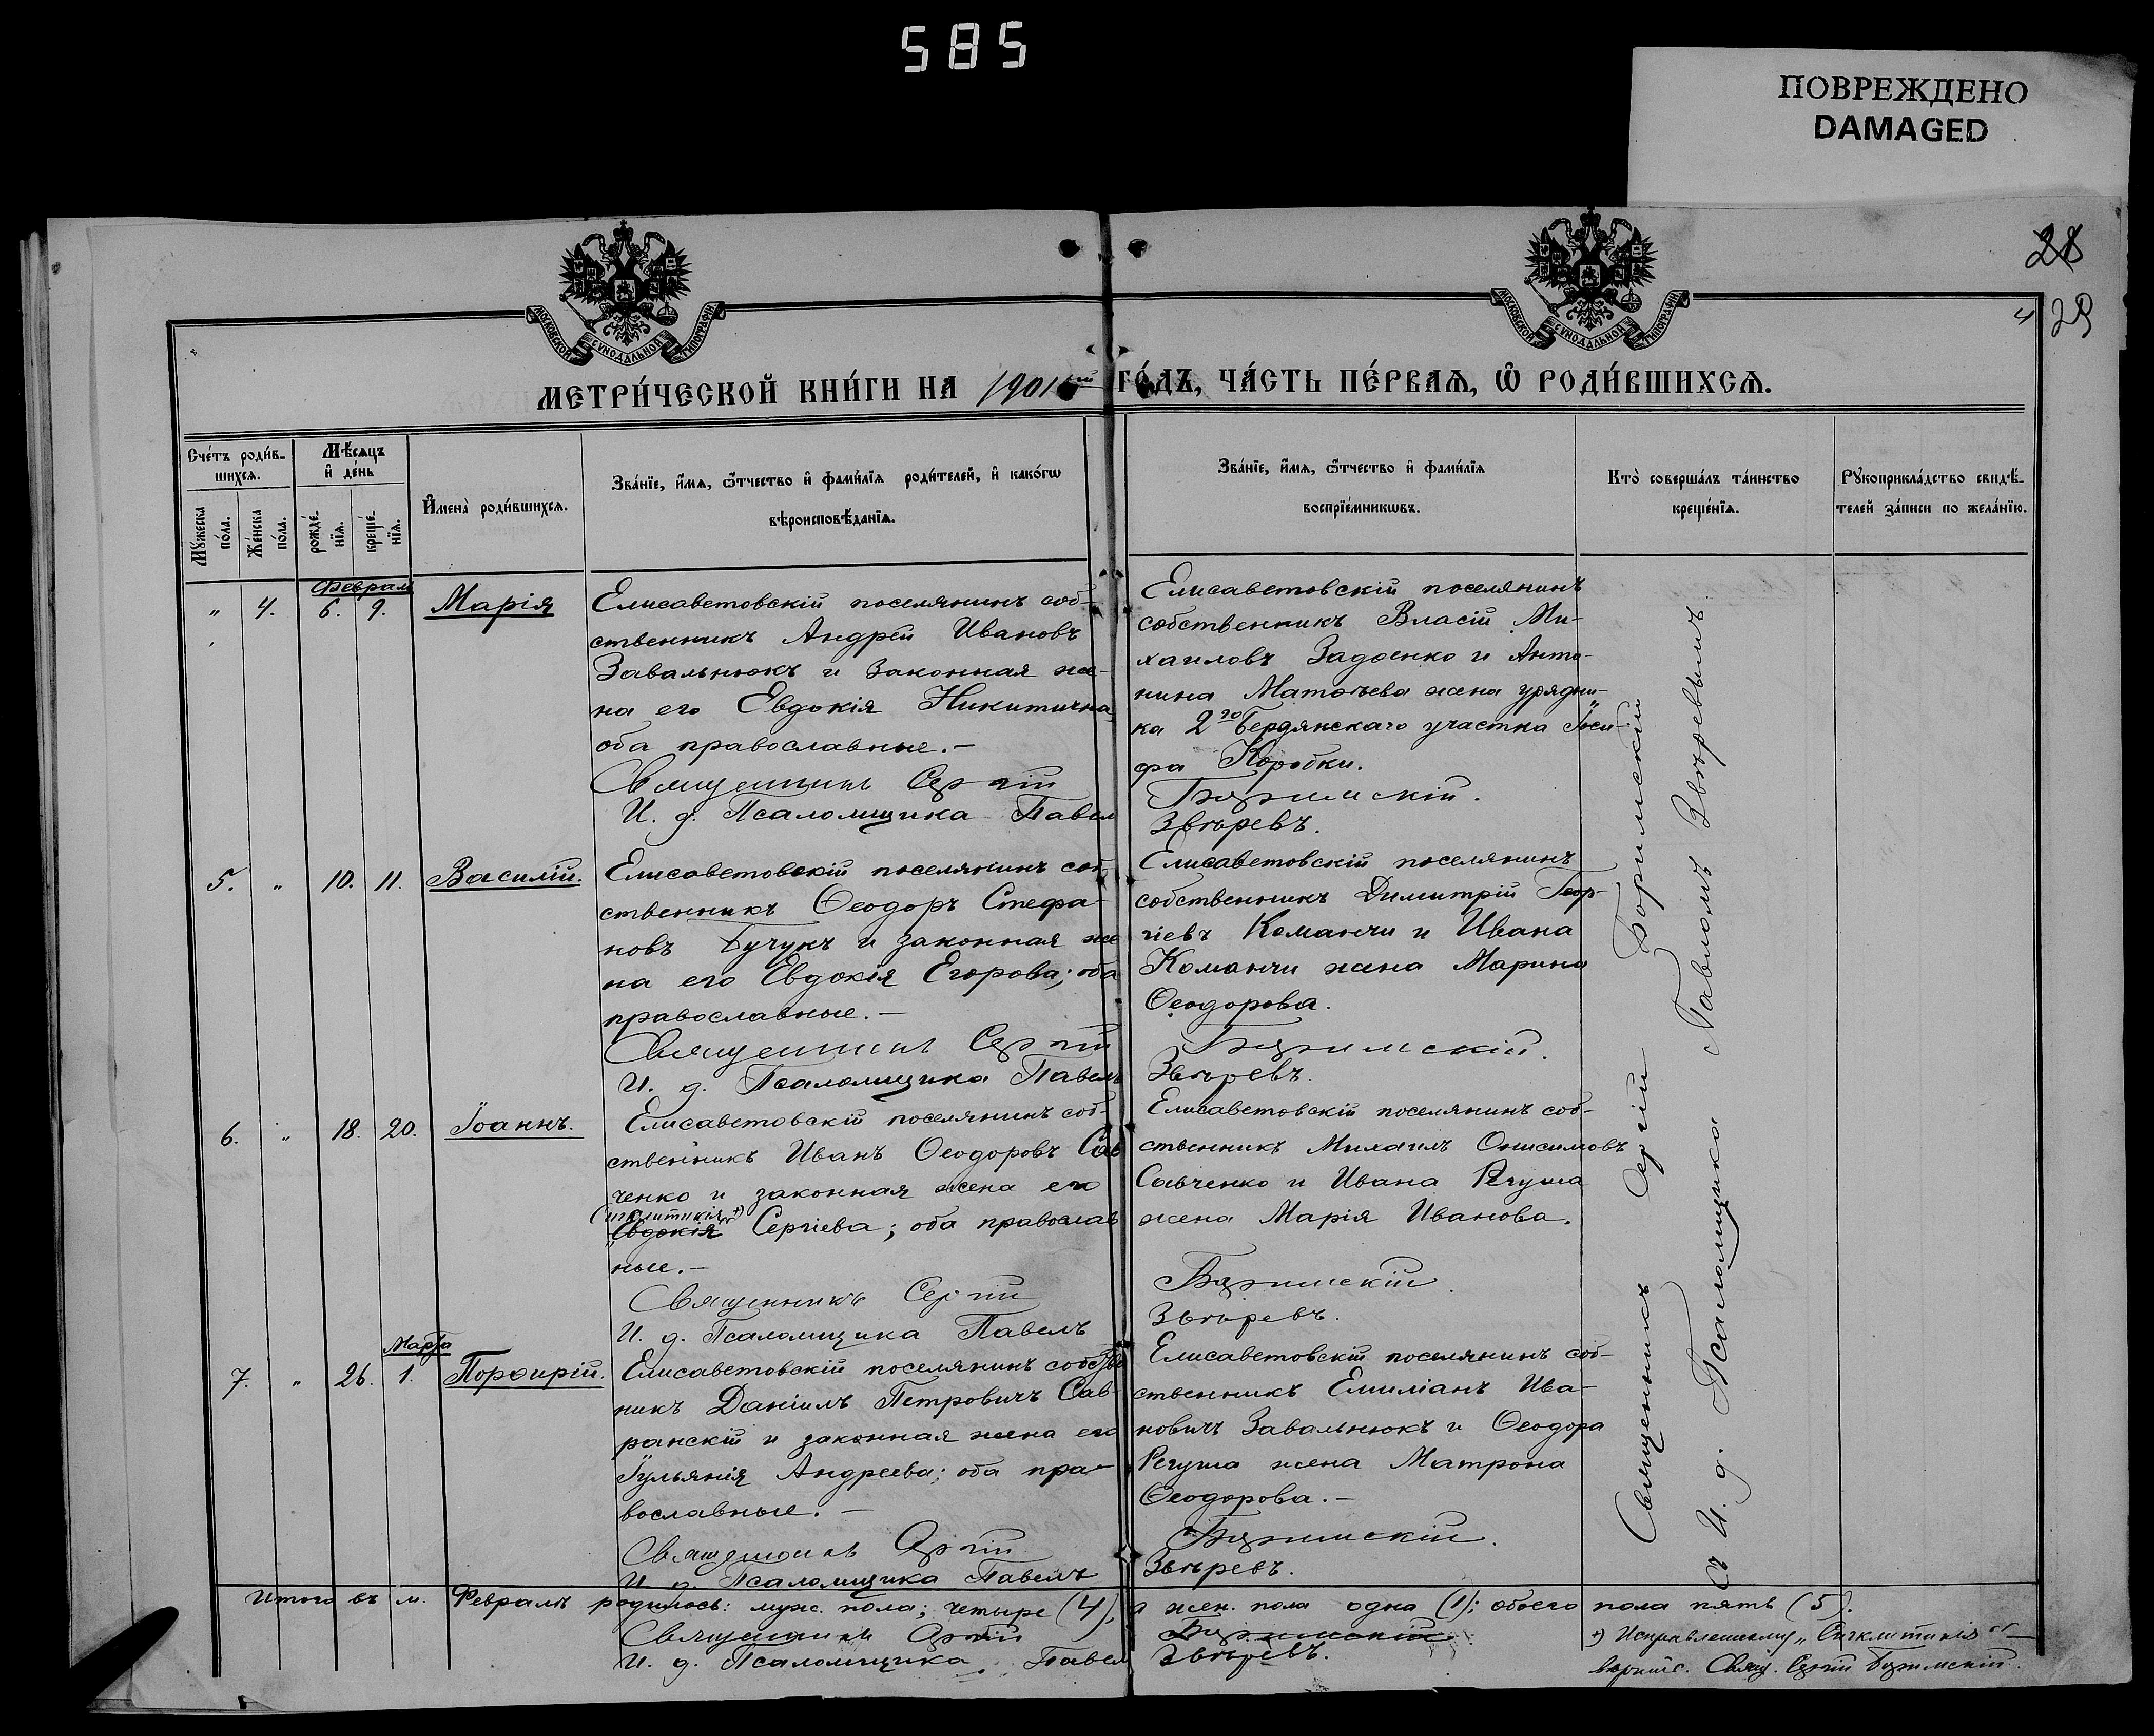 585
ПОВРЕЖДЕНО
DAMAGED
28
29
МОСКОВСКОЙ СѴНОДАЛЬНОЙ ТИПОГРАФІИ
МОСКОВСКОЙ СѴНОДАЛЬНОЙ ТИПОГРАФІИ
МЕТРИ́ЧЕСКОЙ КНИ́ГИ НА 1901ый ГО́ДЪ, ЧА́СТЬ ПЕ́РВАѦ, Ѡ РОДИ́ВШИХСѦ.
Сче́тъ роди́в-
шихсѧ.
Мꙋ́жеска по́ла.
Же́нска по́ла.
Мѣ́сѧцъ
и҆ де́нь
рожде́-
нїѧ.
креще́-
нїѧ.
И҆мена̀ роди́вшихсѧ.
Зва́нїе, и҆́мѧ, ѻ҆́тчество и҆ фами́лїѧ роди́телей, и҆ како́гѡ
вѣроисповѣ́данїѧ.
Зва́нїе, и҆́мѧ, ѻ҆́тчество и҆ фами́лїѧ
воспрїе́мникѡвъ.
Кто̀ соверша́лъ та́инство
креще́нїѧ.
Рꙋкоприкла́дство свидѣ́-
телей за́писи по жела́нїю.
Феврал
" 4. 6. 9. Марія
Елисаветовскій поселянинъ соб-
ственникъ Андрей Ивановъ
Завальнюкъ и законная же-
на его Евдокія Никитична
оба православные.-
Священникъ Сергій
И. д. Псаломщика Павел
Елисаветовскій поселянинъ
собственникъ Власій Ми-
хаиловъ Задоенко и Анто-
нина Матѳѣева жена урядни-
ка 2го Бердянскаго участка Іоси-
фа Коробки.
Боримскій.
Звѣревъ.
5. " 10. 11. Василій.
Елисаветовскій поселянинъ соб-
ственникъ Ѳеодоръ Стефа-
новъ Бучукъ и законная же
на его Евдокія Егорова; оба
православные.-
Священникъ Сергій
И. д. Псаломщика Павелъ
Елисаветовскій поселянинъ
собственникъ Димитрій Геор-
гіевъ Команчи и Ивана
Команчи жена Марина
Ѳеодорова.
Боримскій.
Звѣревъ.
6. " 18. 20. Іоаннъ.
Елисаветовскій поселянинъ соб-
ственникъ Иванъ Ѳеодоровъ Сав
ченко и законная жена его
Евдокія Сергіева; оба православ
ные.-
Священникъ Сергій
И. д. Псаломщика Павелъ
Елисаветовскій поселянинъ соб-
ственникъ Михаилъ Онисимовъ
Савченко и Ивана Регуша
жена Марія Иванова.
Боримскій.
Звѣревъ.
Марта
7. " 26. 1. Порфирій.
Елисаветовскій поселянинъ собстве
никъ Даніилъ Петровичъ Сав-
ранскій и законная жена его
Іульянія Андреева; оба пра-
вославные.-
Священникъ Сергій
И. д. Псаломщика Павелъ
Елисаветовскій поселянинъ соб-
ственникъ Емиліанъ Ива-
новичъ Завальнюкъ и Ѳеодора
Регуша жена Матрона
Ѳеодорова.-
Боримскій.
Звѣревъ.
Священникъ Сергій Боримскій
съ И. д. Псаломщика Павломъ Звѣревымъ.
Итого въ м. Февралѣ родилось: муж. пола; четыре (4), а жен. пола одна (1); обоего пола пять (5).
Священникъ Сергій Боримскій
И. д. Псаломщика Павел Звѣревъ.
+) Исправленному "Сигклитикія"
вѣрить. Свящ. Сергій Боримскій.